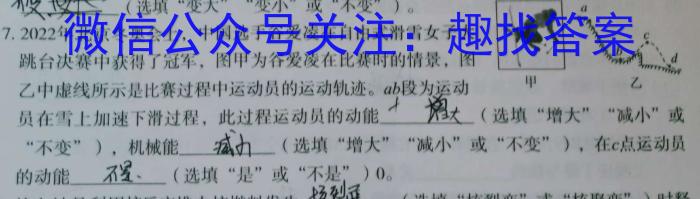 (选填“变大”“变小”或“不变”)。
微信公众号关注：趣找答案
7. 2022年
跳台决赛中获得了冠军，图甲为谷爱凌在比赛时的情景，图
乙中虚线所示是比赛过程中运动员的运动轨迹。ab段为运动
员在雪上加速下滑过程，此过程运动员的动能 增大 (选填“增大”“减小”或
“不变”)，机械能 减小 (选填“增大”“减小”或“不变”)，在c点运动员
的动能 不是 (选填“是”或“不是”)0。
甲 乙
a b c d